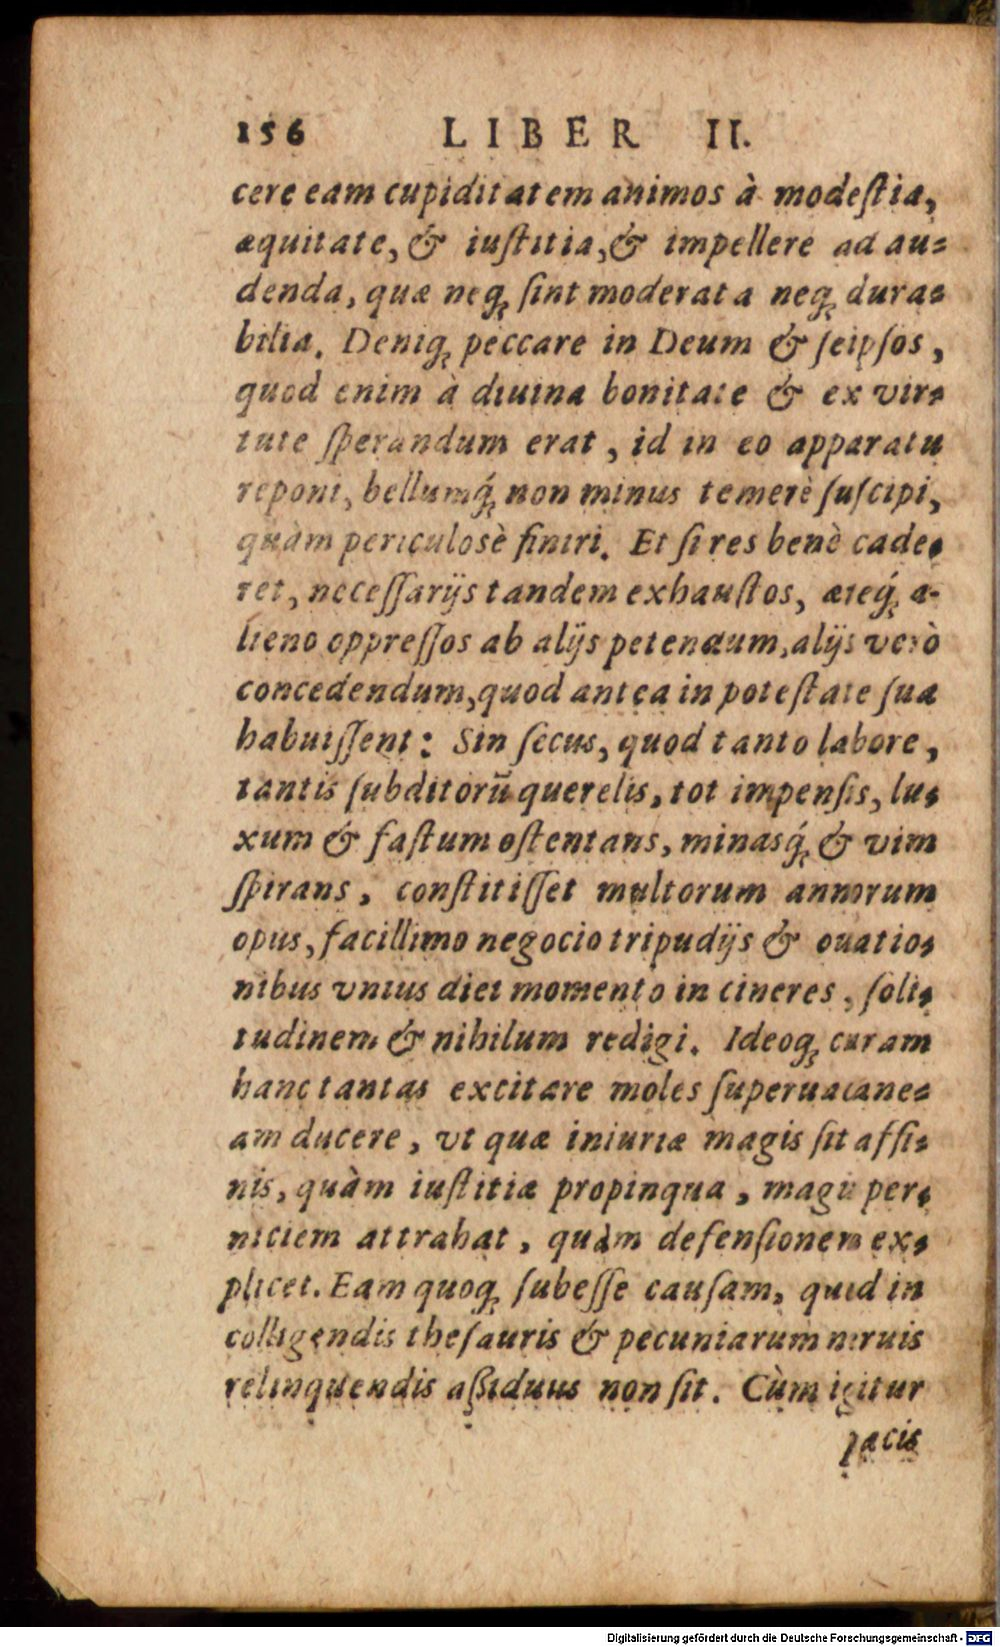 156 LIBER II.
cere eam cupiditatem animos à modeſtia,
æquitate, & iuſtitia, & impellere ad au-
denda, quæ neq; ſint moderata neq; dura-
bilia. Deniq; peccare in Deum & ſeipſos,
quod enim à diuina bonitate & ex vir-
tute ſperandum erat, id in eo apparatu
reponi, bellumq́; non minus temerè ſuſcipi,
quàm periculosè finiri. Et ſi res benè cade-
ret, neceſſarijs tandem exhauſtos, æreq́; a-
lieno oppreſſos ab alijs petendum, alijs verò
concedendum, quod antea in poteſtate ſua
habuiſſent: Sin ſecus, quod tanto labore,
tantis ſubditorū querelis, tot impenſis, lu-
xum & faſtum oſtentans, minasq́; & vim
ſpirans, conſtitiſſet multorum annorum
opus, facillimo negocio tripudijs & ouatio-
nibus vnius diei momento in cineres, ſoli-
tudinem & nihilum redigi. Ideoq; curam
hanc tantas excitare moles ſuperuacane-
am ducere, vt quæ iniuriæ magis ſit affi-
nis, quàm iuſtitiæ propinqua, magis per-
niciem attrahat, quàm defenſionem ex-
plicet. Eam quoq; ſubeſſe cauſam, quod in
colligendis theſauris & pecuniarum neruis
relinquendis aſsiduus non ſit. Cùm igitur
pacis
Digitalisierung gefördert durch die Deutsche Forschungsgemeinschaft - DFG